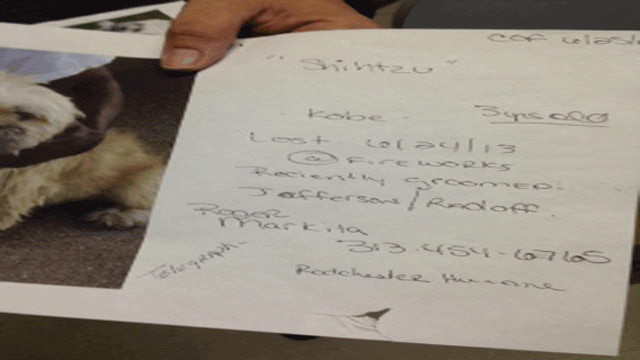 COF 6/25/
"Shihtzu"
Kobe. 3yrs old
Lost 6/24/13
@ Fireworks
Reciently groomed.
Jefferson/Radoff.
Roger
Markita
313-454-6765
Telegraph-
Rodchester Humane